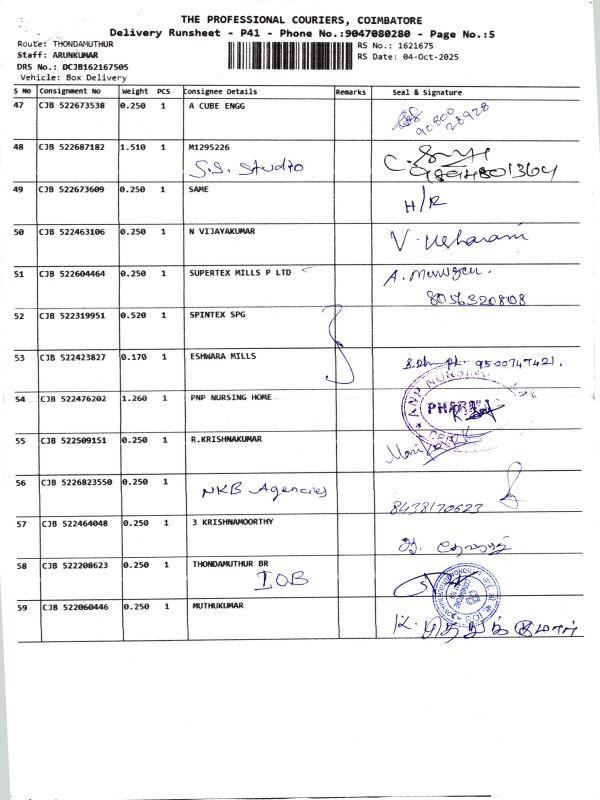 THE PROFESSIONAL COURIERS, COIMBATORE
Delivery Runsheet - P41 - Phone No.:9047080280 - Page No.:5
Route: THONDAMUTHUR
Staff: ARUNKUMAR
DRS No.: DCJB162167505
Vehicle: Box Delivery
RS No.: 1621675
RS Date: 04-Oct-2025
S No Consignment No Weight PCS Consignee Details Remarks Seal & Signature
47 CJB 522673538 0.250 1 A CUBE ENGG
90800
28928
48 CJB 522687182 1.510 1 M1295226
S.S. Studio
49 CJB 522673609 0.250 1 SAME H/R
50 CJB 522463106 0.250 1 N VIJAYAKUMAR
51 CJB 522604464 0.250 1 SUPERTEX MILLS P LTD A. Murugan.
8056320808
52 CJB 522319951 0.520 1 SPINTEX SPG
53 CJB 522423827 0.170 1 ESHWARA MILLS 9500747421.
54 CJB 522476202 1.260 1 PNP NURSING HOME
55 CJB 522509151 0.250 1 R.KRISHNAKUMAR
56 CJB 5226823550 0.250 1 NKB Agencies
8438170623
57 CJB 522464048 0.250 1 3 KRISHNAMOORTHY
58 CJB 522208623 0.250 1 THONDAMUTHUR BR
IOB
59 CJB 522060446 0.250 1 MUTHUKUMAR